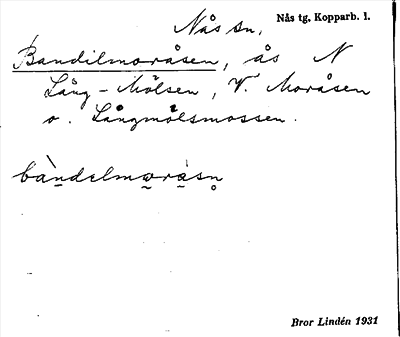 Nås sn. Nås tg, Kopparb. l.
Bandilmoråsen, ås N
Lång-Mölsen, V. Moråsen
o. Långmölsmossen.
bàndelmoràsn̥
Bror Lindén 1931